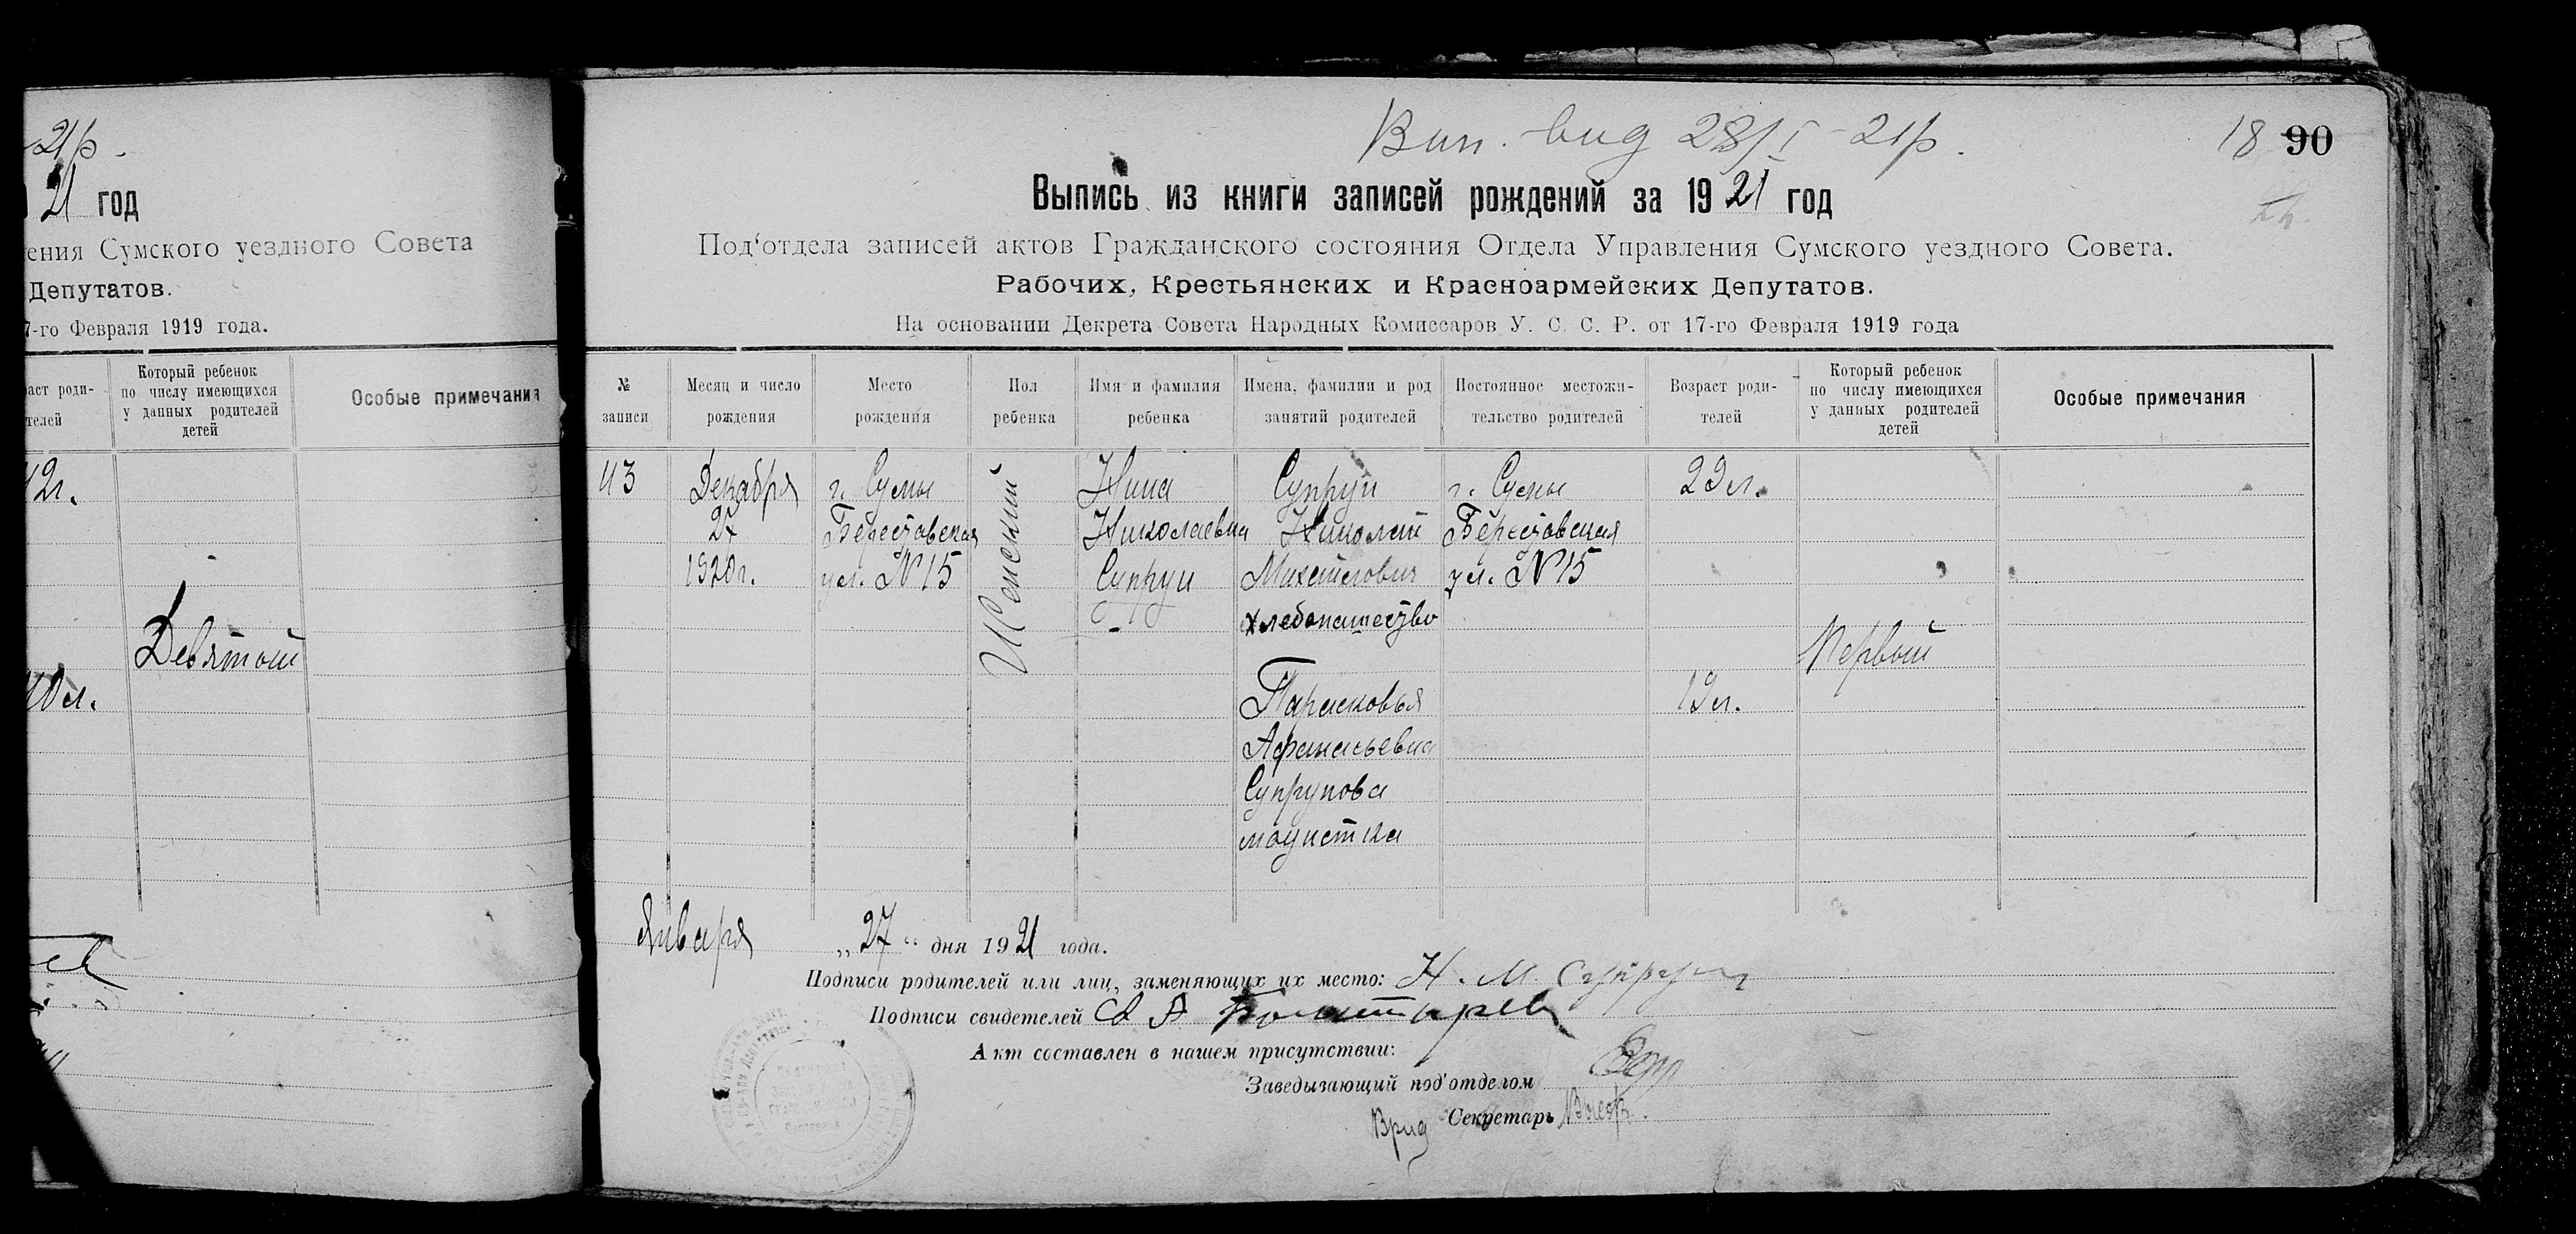 21р.
21 год
ения Сумского уездного Совета
Депутатов.
7-го Февраля 1919 года.
аст роди-
телей
Который ребенок
по числу имеющихся
у данных родителей
детей
Особые примечания
42г.
Девятый
40 л.
Вип. вид 28/I - 21р.
18 90
Выпись из книги записей рождений за 1921 год
Под'отдела записей актов Гражданского состояния Отдела Управления Сумского уездного Совета.
Рабочих, Крестьянских и Красноармейских Депутатов.
На основании Декрета Совета Народных Комиссаров У. С. С. Р. от 17-го Февраля 1919 года
№
записи
Месяц и число
рождения
Место
рождения
Пол
ребенка
Имя и фамилия
ребенка
Имена, фамилии и род
занятий родителей
Постоянное местожи-
тельство родителей
Возраст роди-
телей
Который ребенок
по числу имеющихся
у данных родителей
детей
Особые примечания
43
Декабря
27
1920г.
г. Сумы
Берестовская
ул. № 15
Женский
Нина
Николаевна
Супрун
Супрун
Николай
Михайлович
хлебопашество
Парасковья
Афанасьевна
Супрунова
модистка
г. Сумы
Берестовская
ул. № 15
22 л.
19 л.
Первый
Января „27“ дня 1921 года.
Подписи родителей или лиц, заменяющих их место: Н. М. Супрун
Подписи свидетелей
Акт составлен в нашем присутствии:
Заведывающий под'отделом
Врид Секретарь